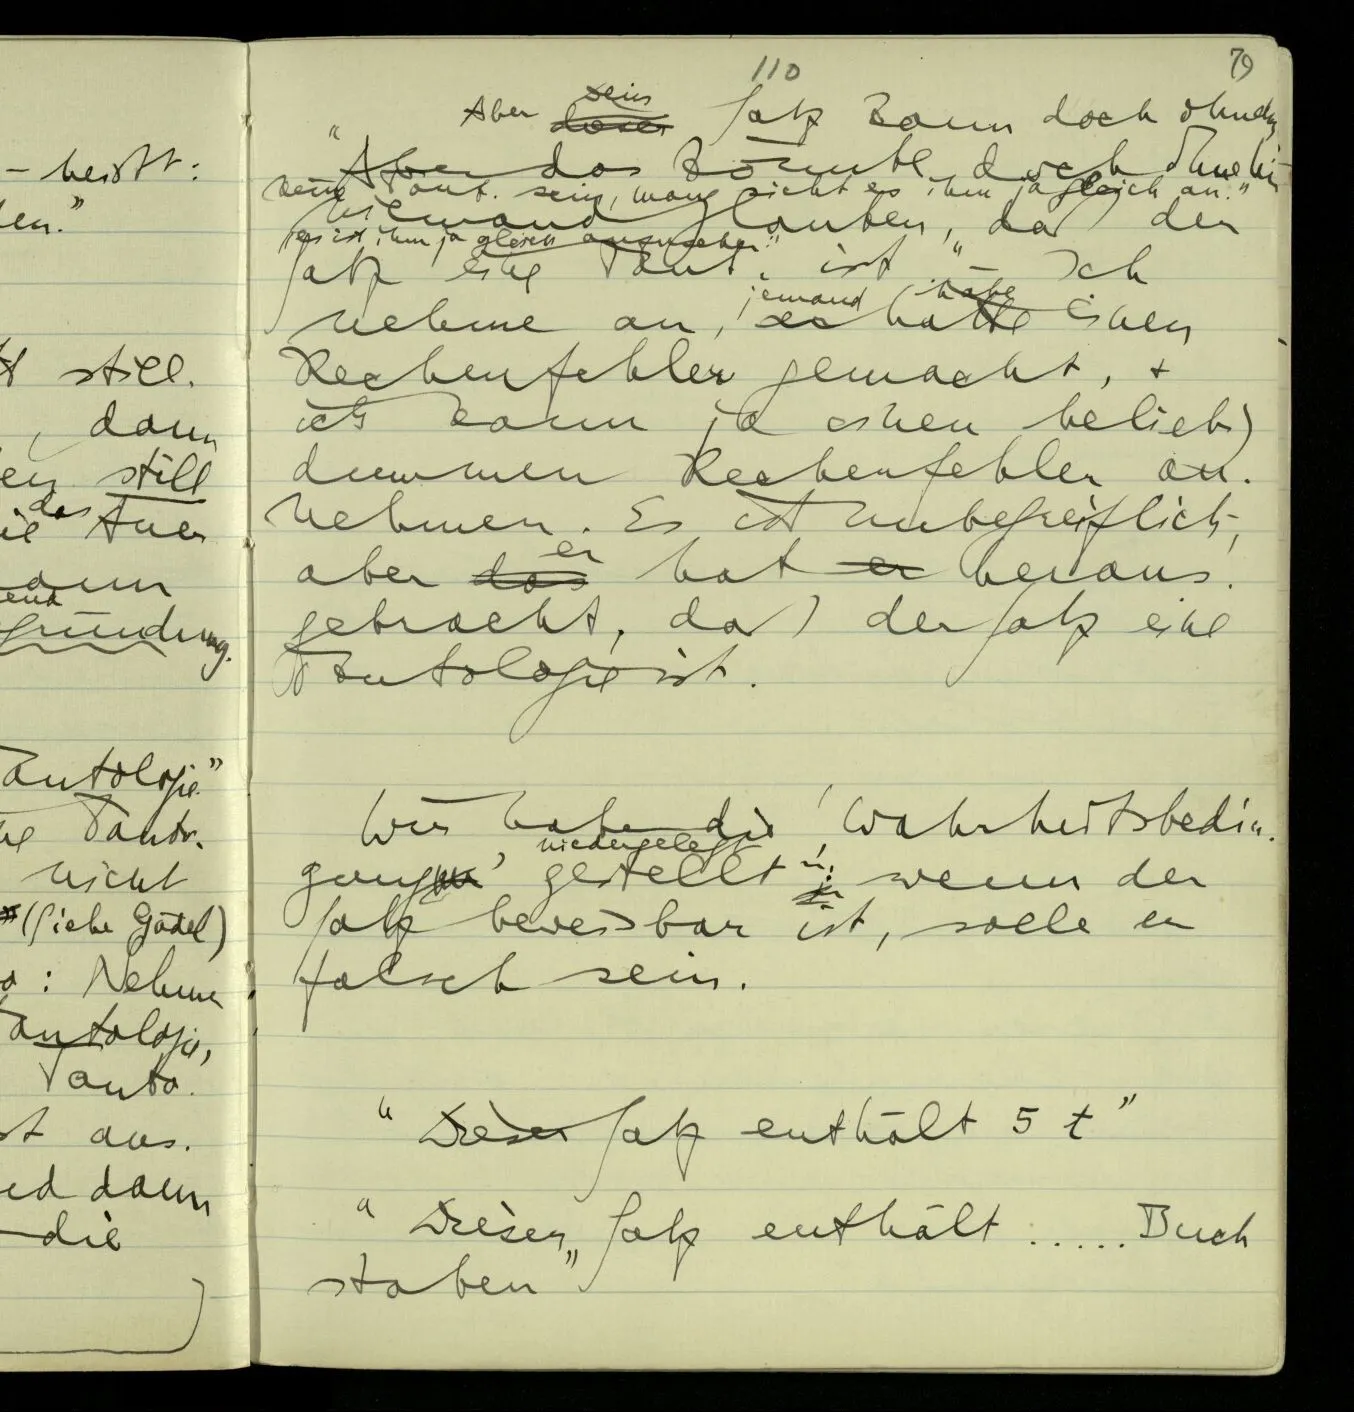 – heisst:
en."
t still.
, dann
en still
das
ie Tuer
ann
end
gründung.
Tautologie"
ne Taut.
nicht
(siehe Gödel)
o: Nehme
Tautologie,
Tauto.
st aus.
ed dann
die
110
79
sein
Aber dieser Satz kann doch ohnehin
" Aber das könnte doch ohnehin
keine Taut. sein, man sieht es ihm ja gleich an."
niemand glauben, daß der
es ist ihm ja gleich anzusehen"
Satz eine Taut. ist." – Ich
jemand habe
nehme an, er hätte einen
Rechenfehler gemacht, +
ich kann ja einen belieb)
dummen Rechenfehler an-
nehmen. Es ist unbegreiflich,
er
aber das hat er heraus-
gebracht, daß der Satz eine
Tautologie ist.
Wir haben die 'Wahrheitsbedin-
niedergelegt
gung' gestellt: wenn der
Satz beweisbar ist, solle er
falsch sein.
" Dieser Satz enthält 5 t"
" Dieser Satz enthält ..... Buch
staben"